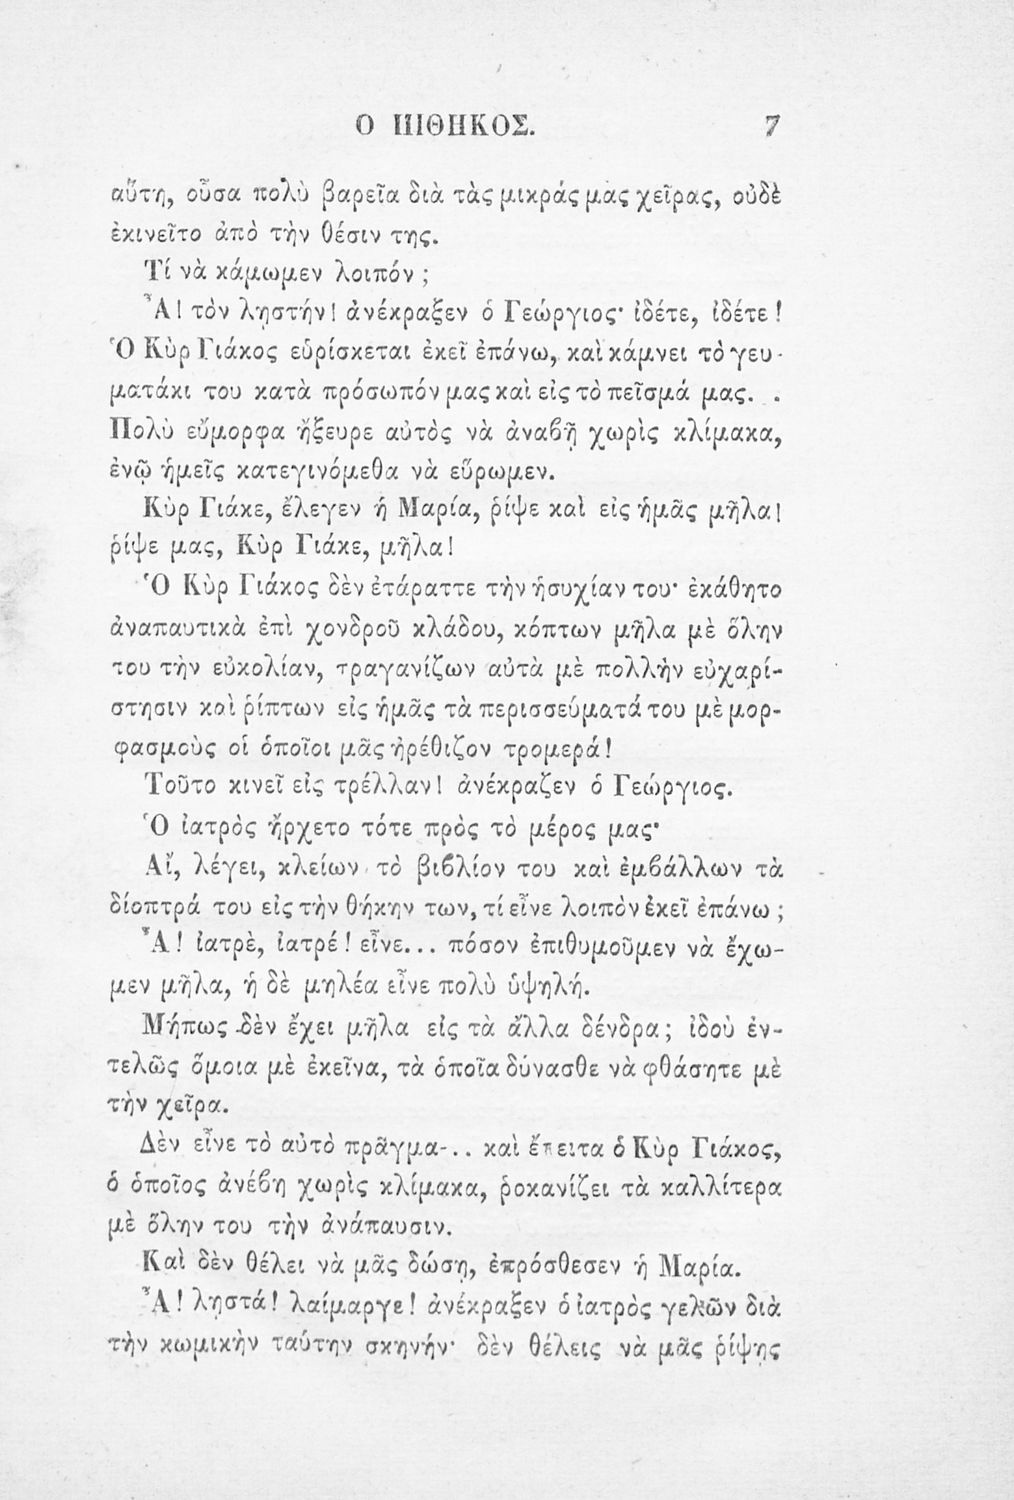 Ο ΠΙΘΗΚΟΣ. 7
αὕτη, οὖσα πολὺ βαρεῖα διὰ τὰς μικράς μας χεῖρας, οὐδὲ
ἐκινεῖτο ἀπὸ τὴν θέσιν της.
Τί νὰ κάμωμεν λοιπόν ;
Ἆ! τὸν λῃστήν! ἀνέκραξεν ὁ Γεώργιος· ἰδέτε, ἰδέτε !
Ὁ Κὺρ Γιάκος εὑρίσκεται ἐκεῖ ἐπάνω, καὶ κάμνει τὸ γευ-
ματάκι του κατὰ πρόσωπόν μας καὶ εἰς τὸ πεῖσμά μας. . .
Πολὺ εὔμορφα ἤξευρε αὐτὸς νὰ ἀναβῇ χωρὶς κλίμακα,
ἐνῷ ἡμεῖς κατεγινόμεθα νὰ εὕρωμεν.
Κὺρ Γιάκε, ἔλεγεν ἡ Μαρία, ῥίψε καὶ εἰς ἡμᾶς μῆλα!
ῥίψε μας, Κὺρ Γιάκε, μῆλα!
Ὁ Κὺρ Γιάκος δὲν ἐτάραττε τὴν ἡσυχίαν του· ἐκάθητο
ἀναπαυτικὰ ἐπὶ χονδροῦ κλάδου, κόπτων μῆλα μὲ ὅλην
του τὴν εὐκολίαν, τραγανίζων αὐτὰ μὲ πολλὴν εὐχαρί-
στησιν καὶ ῥίπτων εἰς ἡμᾶς τὰ περισσεύματά του μὲ μορ-
φασμοὺς οἱ ὁποῖοι μᾶς ἠρέθιζον τρομερά!
Τοῦτο κινεῖ εἰς τρέλλαν! ἀνέκραζεν ὁ Γεώργιος.
Ὁ ἰατρὸς ἤρχετο τότε πρὸς τὸ μέρος μας·
Αἴ, λέγει, κλείων τὸ βιβλίον του καὶ ἐμβάλλων τὰ
δίοπτρά του εἰς τὴν θήκην των, τί εἶνε λοιπὸν ἐκεῖ ἐπάνω ;
Ἆ! ἰατρὲ, ἰατρέ! εἶνε... πόσον ἐπιθυμοῦμεν νὰ ἔχω-
μεν μῆλα, ἡ δὲ μηλέα εἶνε πολὺ ὑψηλή.
Μήπως δὲν ἔχει μῆλα εἰς τὰ ἄλλα δένδρα; ἰδοὺ ἐν-
τελῶς ὅμοια μὲ ἐκεῖνα, τὰ ὁποῖα δύνασθε νὰ φθάσητε μὲ
τὴν χεῖρα.
Δὲν εἶνε τὸ αὐτὸ πρᾶγμα... καὶ ἔπειτα ὁ Κὺρ Γιάκος,
ὁ ὁποῖος ἀνέβη χωρὶς κλίμακα, ῥοκανίζει τὰ καλλίτερα
μὲ ὅλην του τὴν ἀνάπαυσιν.
Καὶ δὲν θέλει νὰ μᾶς δώσῃ, ἐπρόσθεσεν ἡ Μαρία.
Ἆ! λῃστά! λαίμαργε! ἀνέκραξεν ὁ ἰατρὸς γελῶν διὰ
τὴν κωμικὴν ταύτην σκηνήν· δὲν θέλεις νὰ μᾶς ῥίψῃς